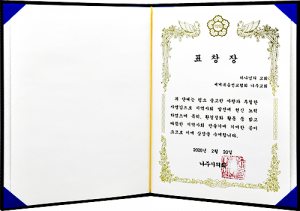 표 창 장
하나님의 교회
세계복음선교협회 나주교회
귀 단체는 평소 숭고한 사랑과 투철한
사명감으로 지역사회 발전에 헌신 노력
하였으며 특히, 환경정화 활동 을 펼쳐
깨끗한 지역사회 만들기에 기여한 공이
크므로 이에 상장을 수여합니다.
2020년 2월 20일
나주시의회